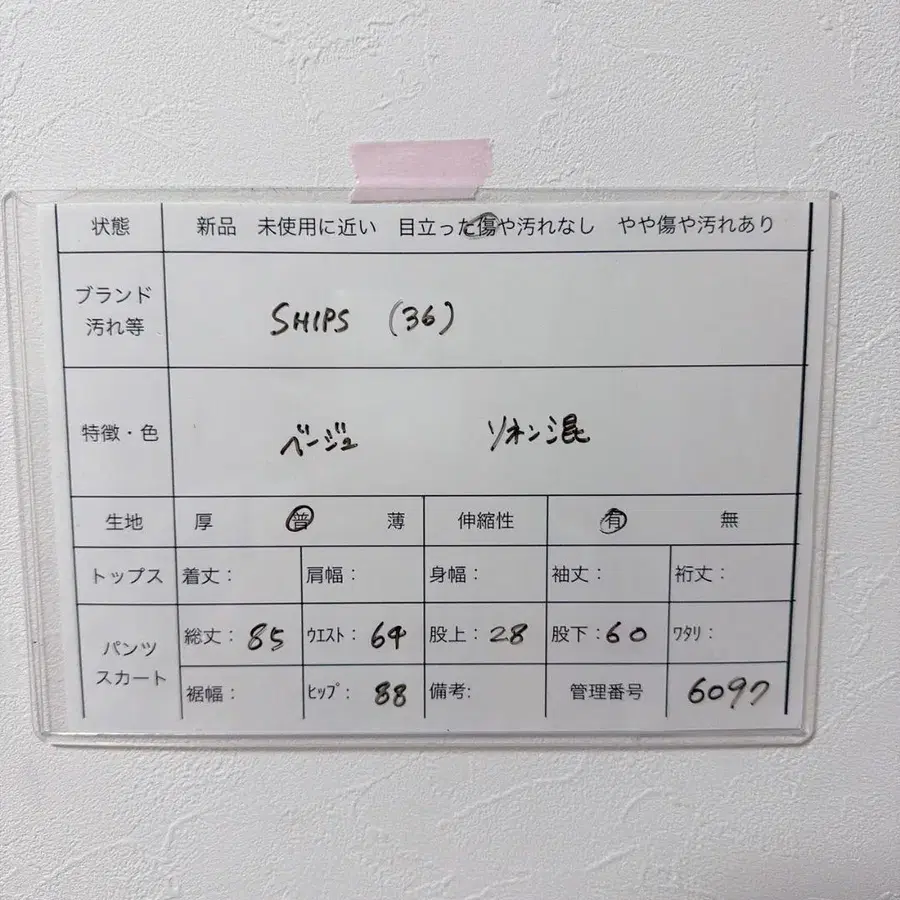 状態 新品 未使用に近い 目立った傷や汚れなし やや傷や汚れあり
ブランド
汚れ等
SHIPS (36)
特徴・色 ベージュ リネン混
生地 厚 普 薄 伸縮性 有 無
トップス 着丈: 肩幅: 身幅: 袖丈: 裄丈:
パンツ
スカート
総丈: 85 ウエスト: 64 股上: 28 股下: 60 ワタリ:
裾幅: ヒップ: 88 備考: 管理番号 6097